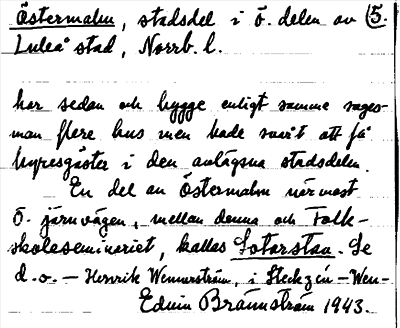 Östermalm, stadsdel i ö. delen av (5.
Luleå stad, Norrb. l.
har sedan och bygge enligt samme sages-
man flere hus men hade svårt att få
hyresgäster i den avlägsna stadsdelen.
En del av Östermalm närmast
ö. järnvägen, mellan denna och Folk-
skoleseminariet, kallas Sotarstan. Se
d.o. – Henrik Wennerström, i Steckzén – Wen-
Edvin Brännström 1943.